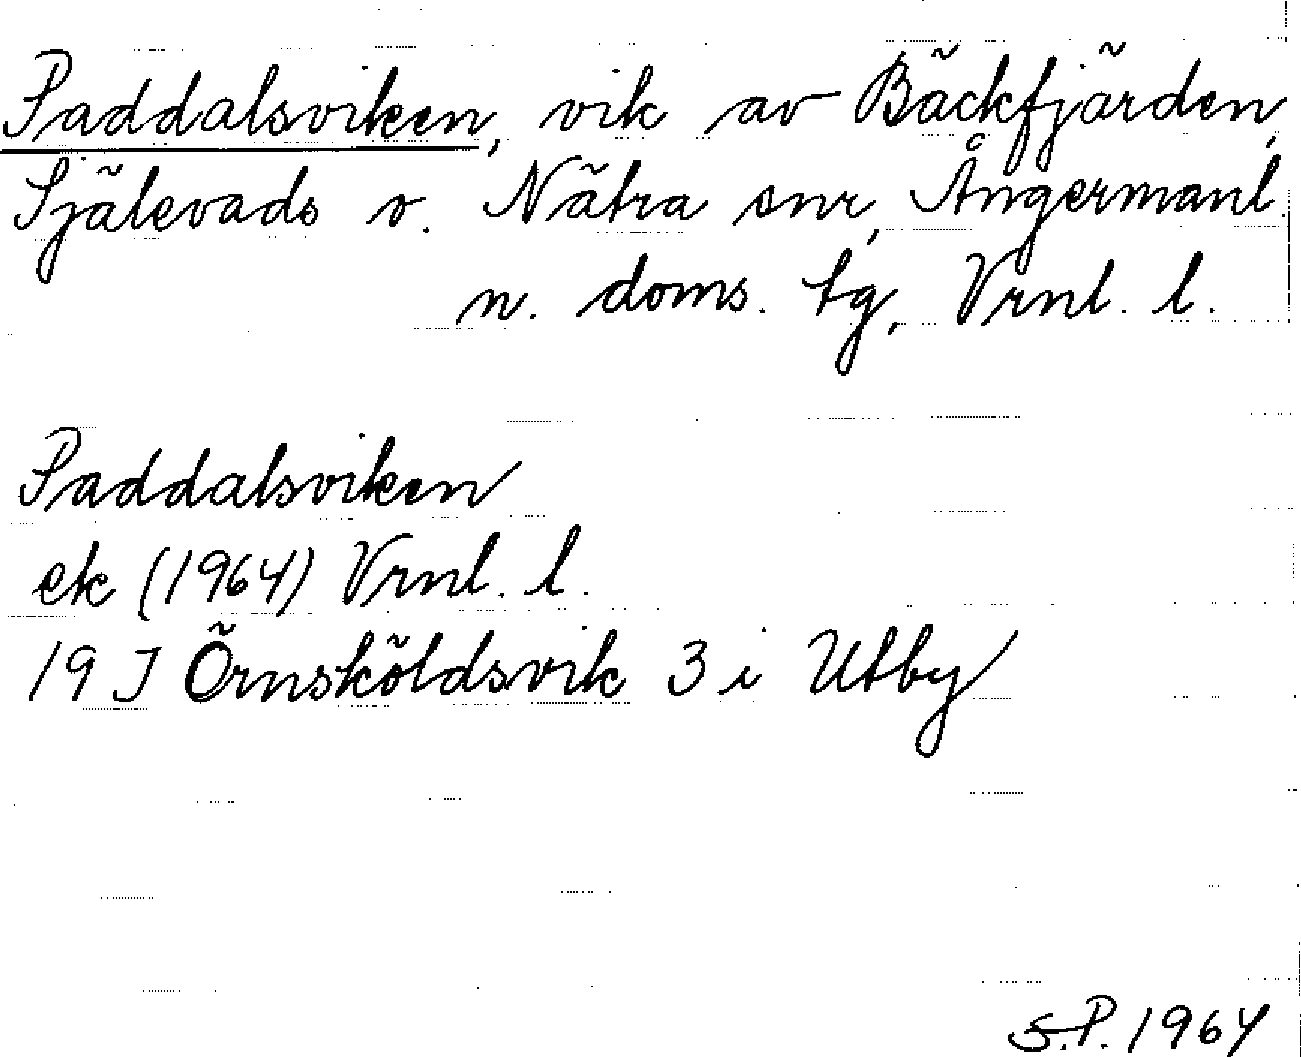 Paddalsviken, vik av Bäckfjärden,
Själevads o. Nätra snr, Ångermanl.
n. doms. tg, Vrnl. l.
Paddalsviken
ek (1964) Vrnl. l.
19 J Örnsköldsvik 3 i Utby
S.P. 1964